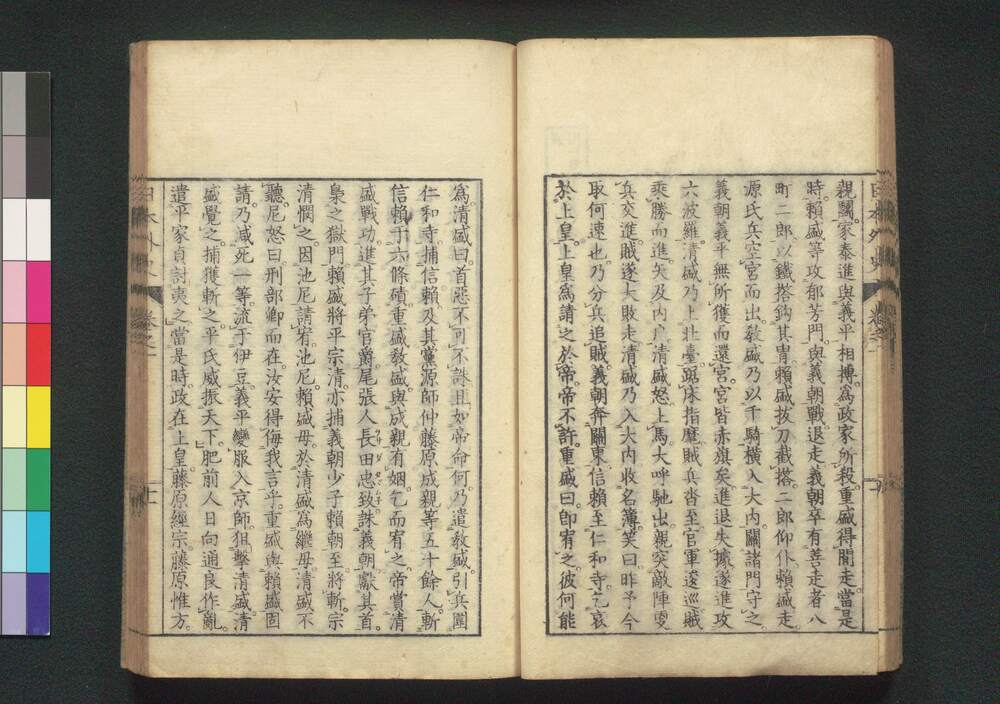 親鬭家泰進與義平相搏爲政家所殺重盛得閒走當是
時賴盛等攻郁芳門與義朝戰退走義朝卒有善走者八
町二郎以鐵搭鈎其冑賴盛拔刀截搭二郎仰仆賴盛走
源氏兵空宮而出教盛乃以千騎橫入大內關諸門守之
義朝義平無所獲而還宮宮皆赤旗矣進退失據遂進攻
六波羅清盛乃上北臺踞床指麾賊兵沓至官軍逡巡賊
乘勝而進矢及內戶清盛怒上馬大呼馳出親突敵陣
兵交進賊遂大敗走清盛乃入大內收名簿笑曰昨予今
取何速也乃分兵追賊義朝奔關東信賴至仁和寺乞哀
於上皇上皇爲請之於帝帝不許重盛曰卽宥之彼何能
爲清盛曰首惡不可不誅且如帝命何乃遣教盛引兵圍
仁和寺捕信賴及其黨源師仲藤原成親等五十餘人斬
信賴于六條磧重盛教盛與成親有姻乞而宥之帝賞清
盛戰功進其子弟官爵尾張人長田忠致誅義朝獻其首
梟之獄門賴盛將平宗清亦捕義朝少子賴朝至將斬宗
清憫之因池尼請宥池尼賴盛母於清盛爲繼母清盛不
聽尼怒曰刑部卿而在汝安得侮我言乎重盛與賴盛固
請乃减死一等流于伊豆義平變服入京師狙擊清盛清
盛覺之捕獲斬之平氏威振天下肥前人日向通良作亂
遣平家貞討夷之當是時政在上皇藤原經宗藤原惟方
日本外史 卷之一